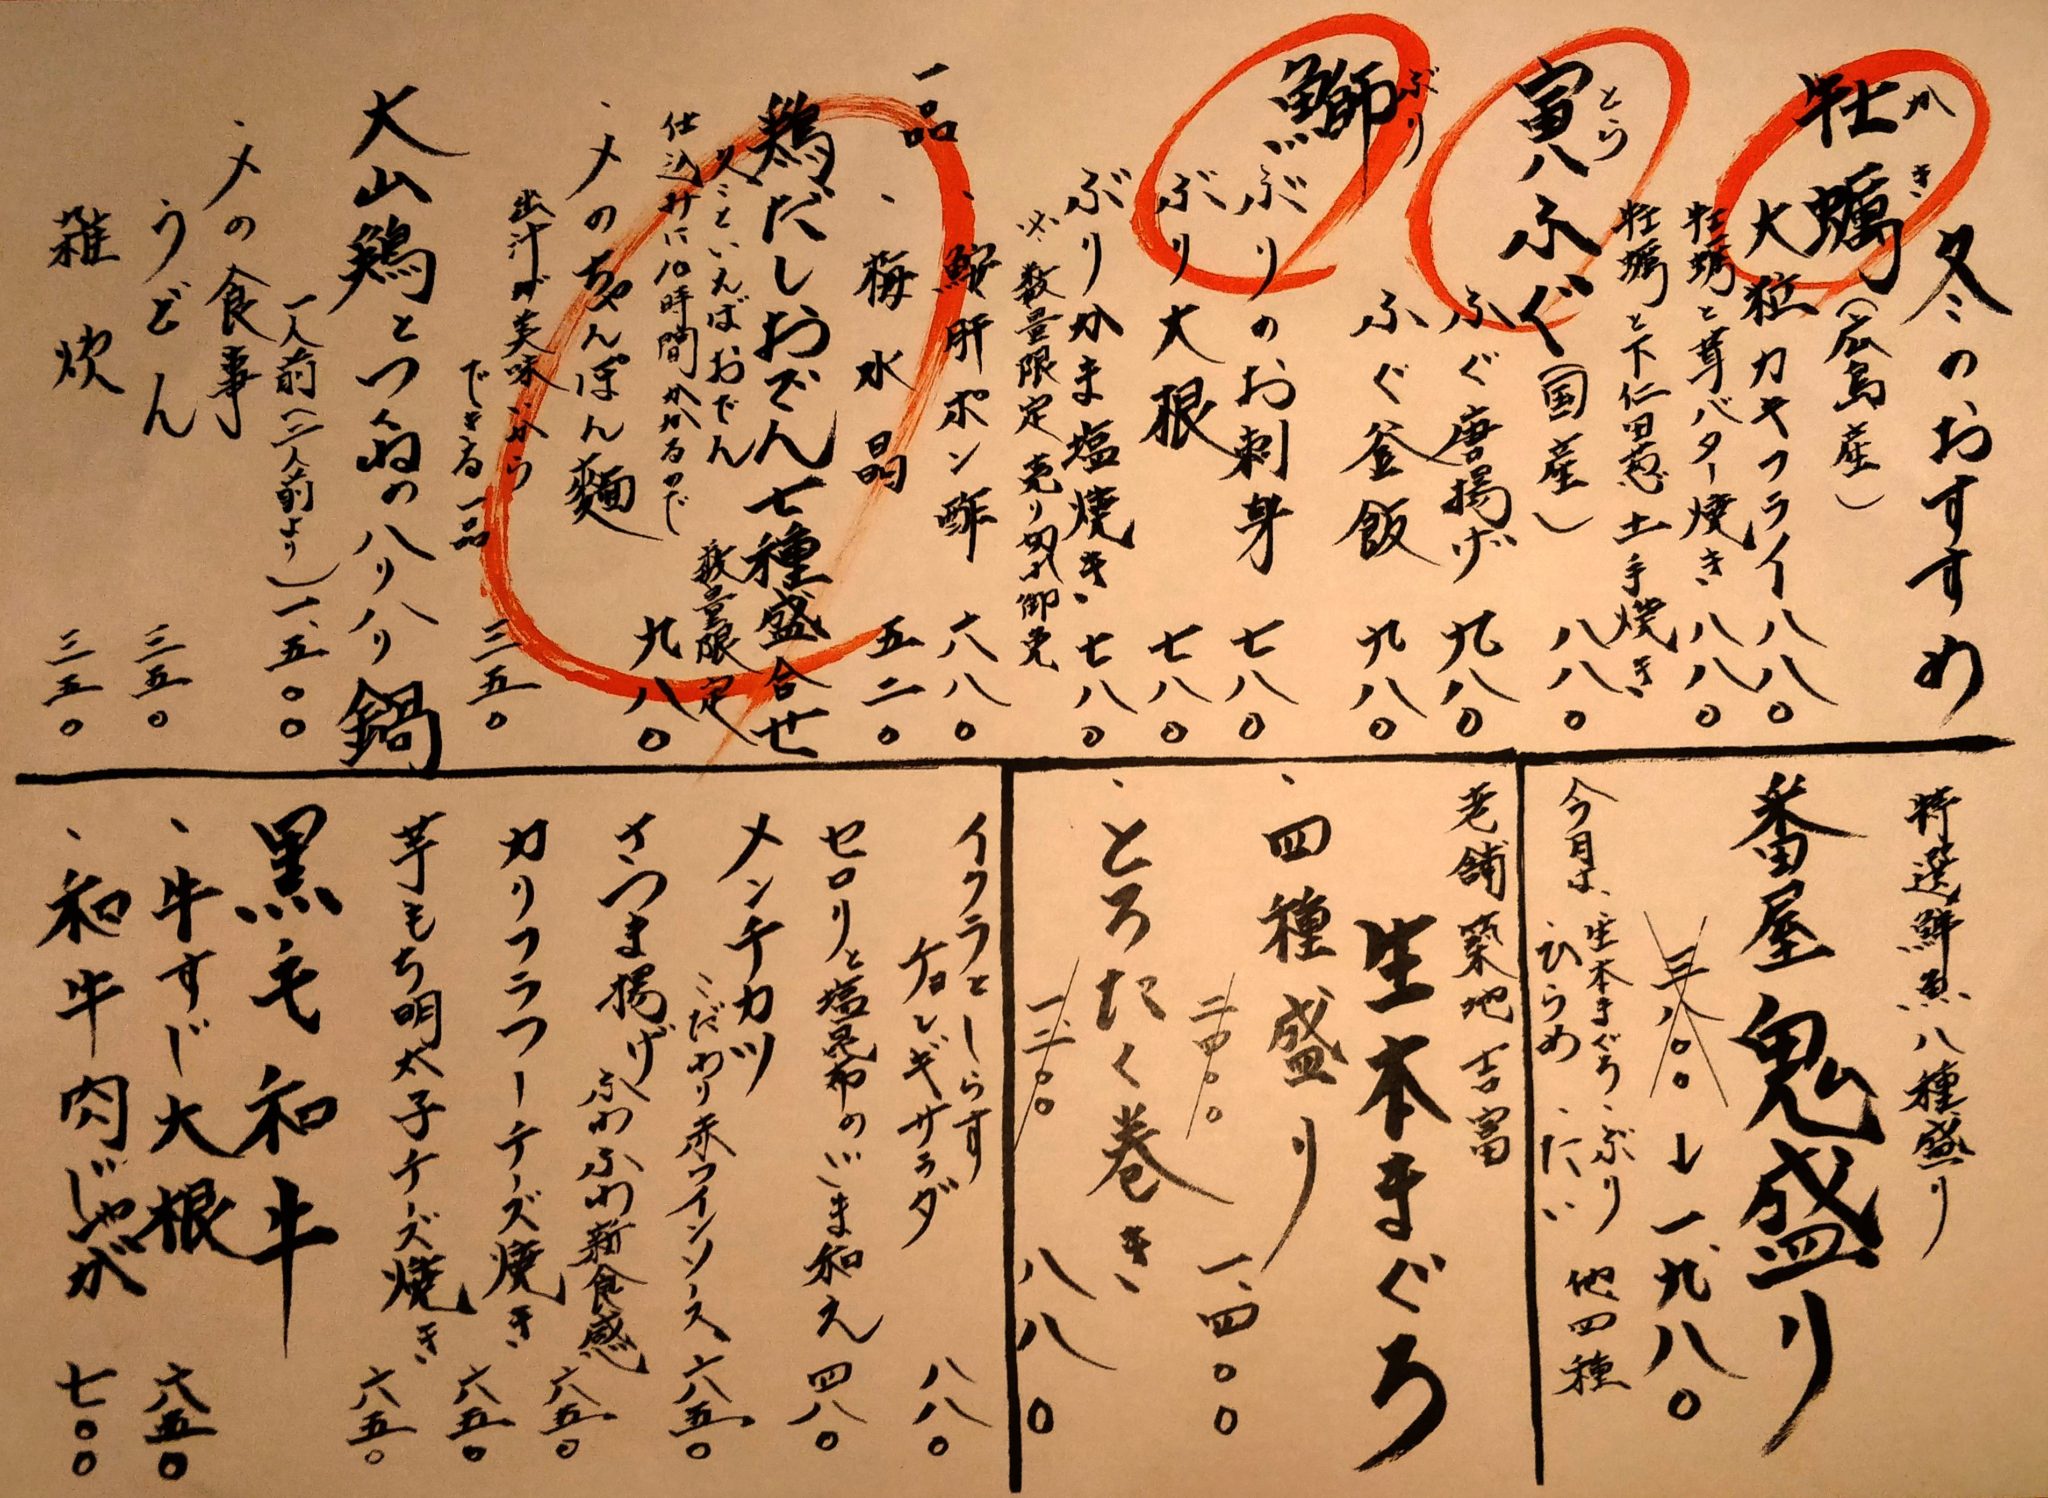 冬のおすすめ
牡蠣(広島産)
かき
大粒カキフライ 八八〇
牡蠣と茸バター焼き 八八〇
牡蠣と下仁田葱土手焼き 八八〇
寅八ふぐ(国産)
とら
ふぐ唐揚げ 九八〇
ふぐ釜飯 九八〇
鰤
ぶり
ぶりのお刺身 七八〇
ぶり大根 七八〇
ぶりかま塩焼き 七八〇
※数量限定 売り切れ御免
一品
、鮟肝ポン酢 六八〇
、梅水晶 五二〇
鶏だしおでん七種盛合せ
冬といえばおでん 数量限定
仕込みに10時間かかるので
九八〇
、〆のちゃんぽん麺
出汁が美味いから
できる一品 三五〇
大山鶏とつくねのハリハリ鍋
一人前(二人前より)一、五〇〇
、〆の食事
うどん 三五〇
雑炊 三五〇
特選鮮魚八種盛り
番屋鬼盛り
三、八〇〇 一、九八〇
今月は、生本まぐろ ぶり 他四種
ひらめ たい
老舗築地吉富
生本まぐろ
、四種盛り
二、四〇〇 一、四〇〇
、とろたく巻き
一、二〇〇 八八〇
イクラとしらす
チョレギサラダ 八八〇
セロリと塩昆布のごま和え 四八〇
メンチカツ
こだわり赤ワインソース 六八五〇
さつま揚げ
ふわふわ新食感 六八五〇
カリフラワーチーズ焼き 六五〇
芋もち明太子チーズ焼き 六五〇
黒毛和牛
、牛すじ大根 六五〇
、和牛肉じゃが 七〇〇